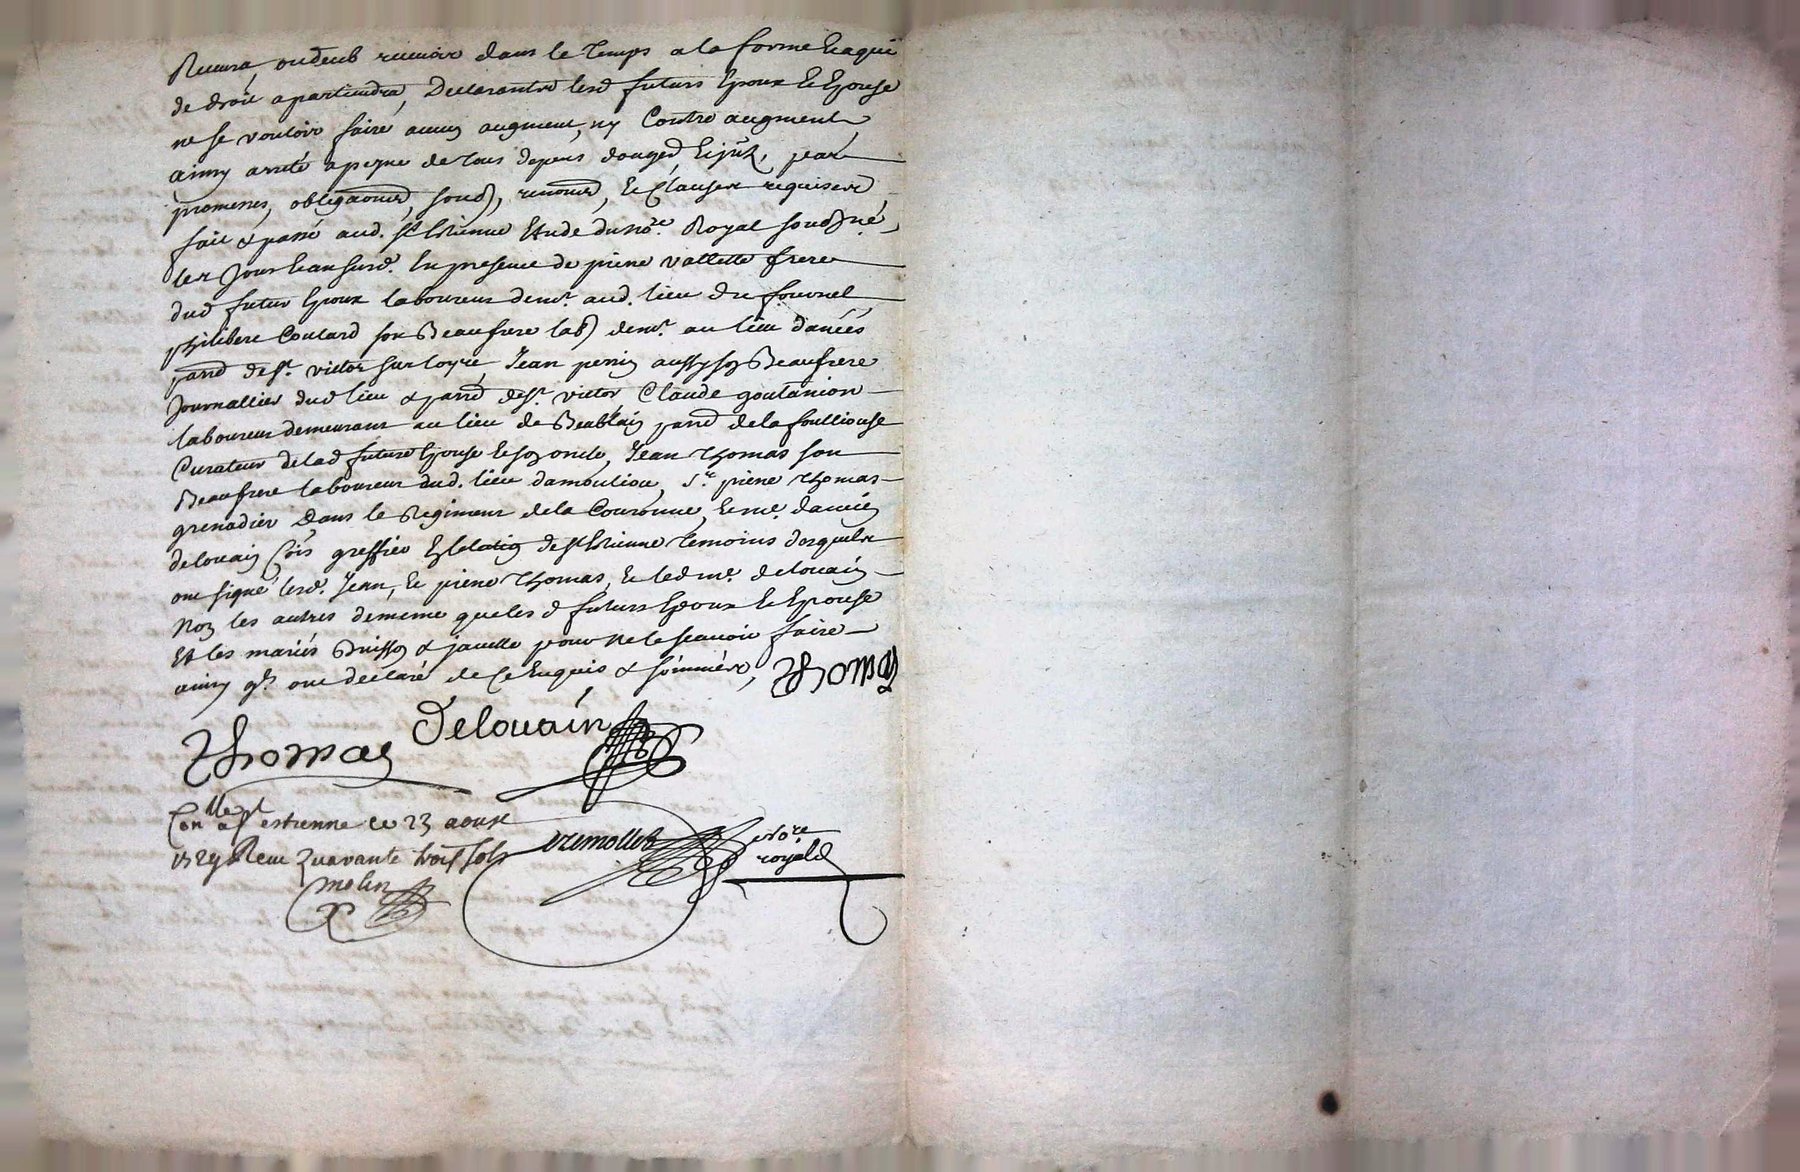 Recevra, ou deub recevoir dans le temps a la forme & a qui
de droit apartiendra, Declarantz lesd futurs Epoux & Epouse
ne se vouloir faire aucun augment, ny Contre augment
ainsy arreté a peyne de tous depens domged & jntz, par
promesses, obligaoned, soud), renoned, & Clauses requises
fait & passé aud. St Estienne Etude du nore. Royal soudné,
les Jour & an susd. En presence de pierre vallette frere
dud futur Epoux laboureur demt. aud. lieu du fournel
philibere Coulard son Beaufrere lab) demt. au lieu
parred de St. victor sur loyre, Jean perrin aussy son Beaufrere
Journallier dud lieu & parred de St. victor, Claude goutanion
laboureur demeurant au lieu de Beablain parred de la foulliouse
Curateur de lad future Epouse & son oncle, Jean Thomas son
Beaufrere laboureur dud. lieu damouliou, Sr. pierre Thomas
grenadier Dans le Regiment de la Couronne, & me. damien
delouain greffier de St Estienne temoins desquels
ont signé lesd. Jean, & pierre Thomas, & led me. delouain
Non les autres de meme que les d futurs Epoux & Epouse
Et les mariés Buisson & javelle pour ne le scavoir faire
ainsy qls ont declaré de Ce Enquis & sommés, Thomas
Thomas Delouain
Conlle a St estienne ce 23 aoust
1729 Receu quarante trois sols
molin
nore
royal